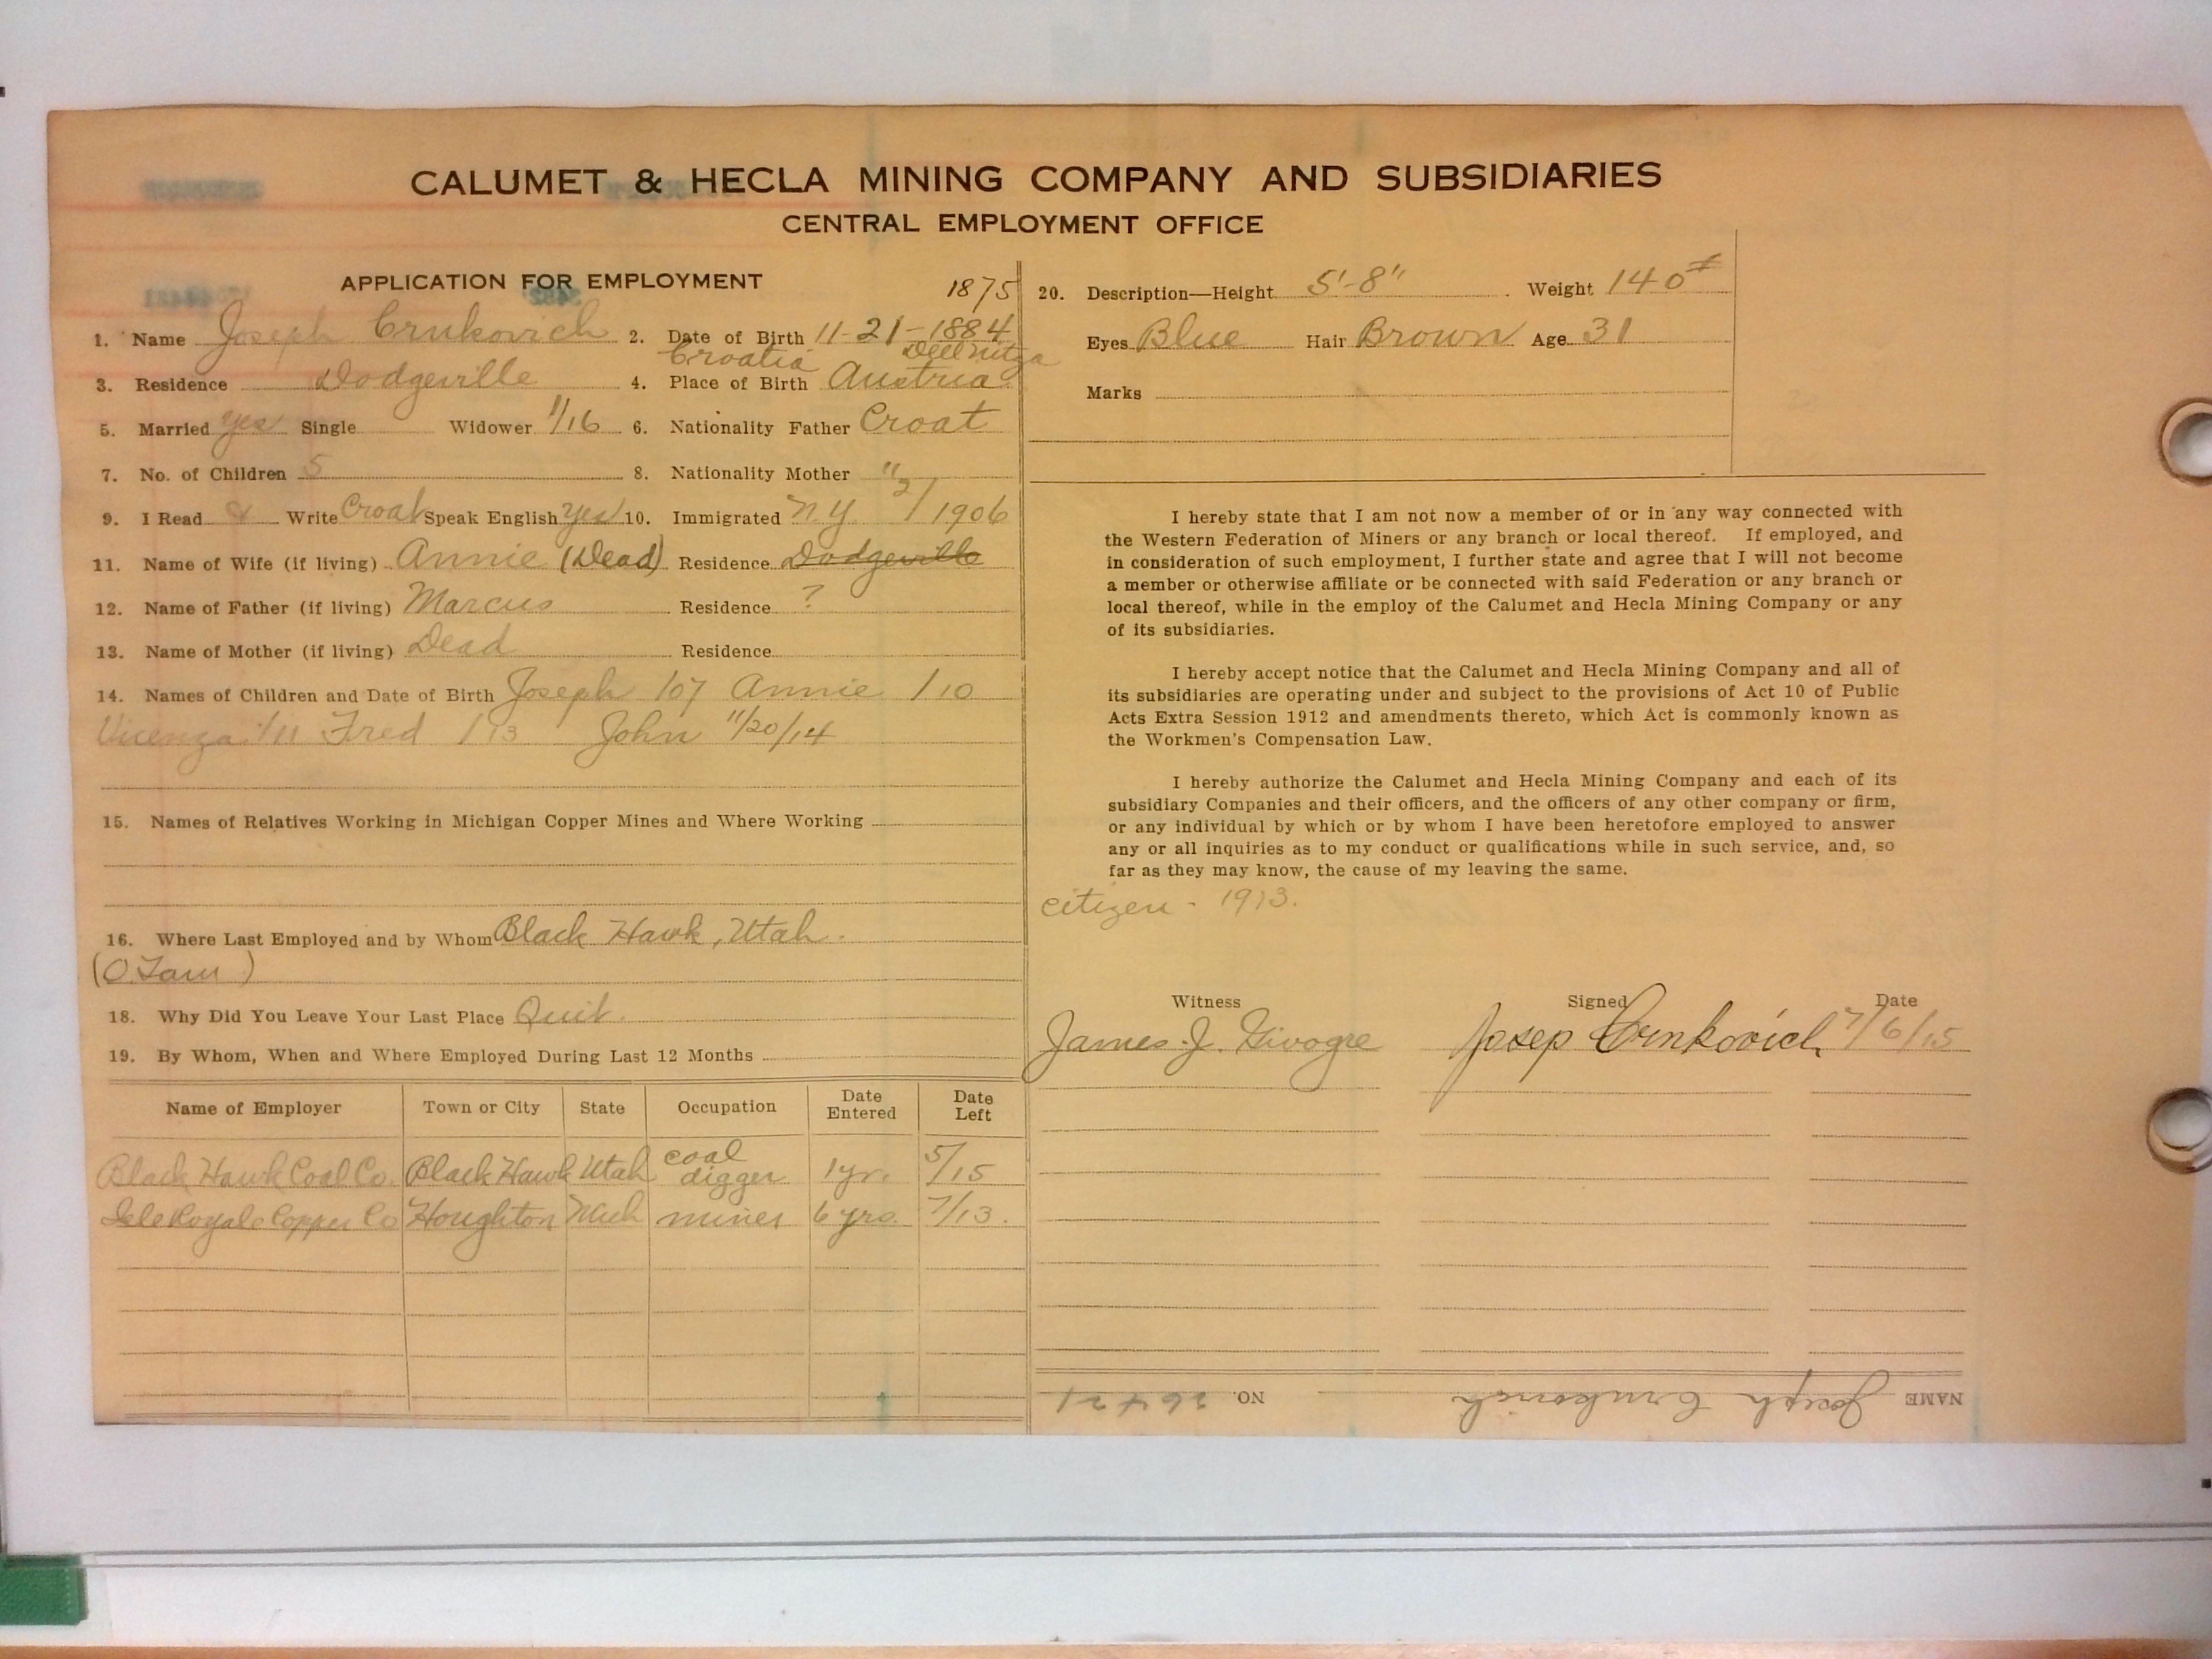 CALUMET & HECLA MINING COMPANY AND SUBSIDIARIES
CENTRAL EMPLOYMENT OFFICE
APPLICATION FOR EMPLOYMENT 1875
1. Name Joseph Crnkovich 2. Date of Birth 11-21-1884
Croatia
3. Residence Dodgeville 4. Place of Birth Austria
5. Married yes Single Widower 1/16 6. Nationality Father Croat
7. No. of Children 5 8. Nationality Mother "
9. I Read & Write Croat Speak English Yes 10. Immigrated N.Y. 2/1906
11. Name of Wife (if living) Annie (Dead) Residence Dodgeville
12. Name of Father (if living) Marcus Residence ?
13. Name of Mother (if living) Dead Residence
14. Names of Children and Date of Birth Joseph /07 Annie /10
Vicenza /11 Fred /13 John 11/20/14
15. Names of Relatives Working in Michigan Copper Mines and Where Working
16. Where Last Employed and by Whom Black Hawk, Utah.
18. Why Did You Leave Your Last Place Quit.
19. By Whom, When and Where Employed During Last 12 Months
Name of Employer Town or City State Occupation Date Entered Date Left
Black Hawk Coal Co. Black Hawk Utah coal digger 1 yr. 5/15
Isle Royale Copper Co Houghton Mich miner 6 yrs. 7/13.
20. Description—Height 5'-8" Weight 140#
Eyes Blue Hair Brown Age 31
Marks
I hereby state that I am not now a member of or in any way connected with
the Western Federation of Miners or any branch or local thereof. If employed, and
in consideration of such employment, I further state and agree that I will not become
a member or otherwise affiliate or be connected with said Federation or any branch or
local thereof, while in the employ of the Calumet and Hecla Mining Company or any
of its subsidiaries.
I hereby accept notice that the Calumet and Hecla Mining Company and all of
its subsidiaries are operating under and subject to the provisions of Act 10 of Public
Acts Extra Session 1912 and amendments thereto, which Act is commonly known as
the Workmen's Compensation Law.
I hereby authorize the Calumet and Hecla Mining Company and each of its
subsidiary Companies and their officers, and the officers of any other company or firm,
or any individual by which or by whom I have been heretofore employed to answer
any or all inquiries as to my conduct or qualifications while in such service, and, so
far as they may know, the cause of my leaving the same.
citizen - 1913.
Witness Signed Date
James J. Josep Crnkovich 7/6/15
NAME Joseph Crnkovich NO. 26421